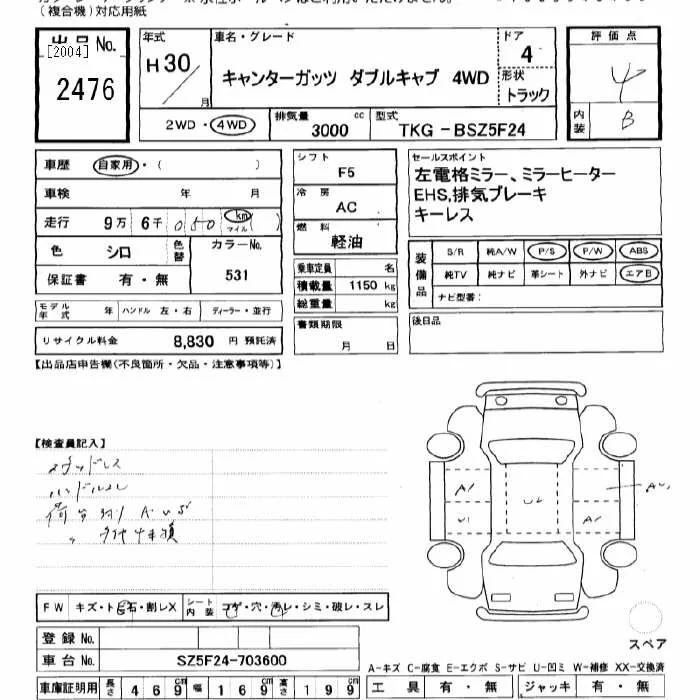 (複合機)対応用紙
出品No.
[2004]
2476
年式
H30/
月
車名・グレード
キャンターガッツ ダブルキャブ 4WD
ドア
4
形状
トラック
評価点
4
内装
B
2WD・4WD
排気量
3000
cc
型式
TKG-BSZ5F24
車歴
自家用・( )
車検 年 月
走行 9万 6千 050 km マイル( )
色
シロ
色替
カラーNo.
531
保証書 有・無
モデル年式 年
ハンドル 左・右
ディーラー・並行
リサイクル料金 8,830 円 預託済
シフト
F5
冷房
AC
燃料
軽油
乗車定員 名
積載量 1150 kg
総重量 kg
書類期限
月 日
セールスポイント
左電格ミラー、ミラーヒーター
EHS,排気ブレーキ
キーレス
装備品
S/R 純A/W P/S P/W ABS
純TV 純ナビ 革シート 外ナビ エアB
ナビ型番:
後日品
【出品店申告欄(不良箇所・欠品・注意事項等)】
【検査員記入】
ハンドルスレ
A1
U1
U2
A1
FW キズ・トビ石・割レX
シート内装 コゲ・穴・汚レ・シミ・破レ・スレ
登録No.
車台No. SZ5F24-703600
車庫証明用 長さ 469cm 幅 169cm 高さ 199cm
スペア
A-キズ C-腐食 E-エクボ S-サビ U-凹ミ W-補修 XX-交換済
工具 有・無 ジャッキ 有・無